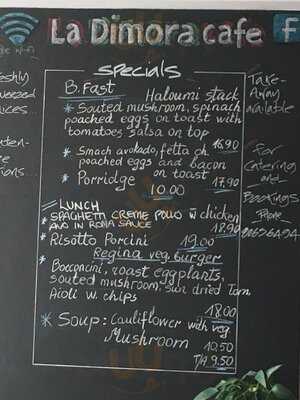 La Dimora cafe f
Free Wi-Fi
Specials
B.Fast
Haloumi stack
* Souted mushroom, spinach
poached eggs on toast with
tomatoes salsa on top
16.90
* Smach avokado, fetta ch.
poached eggs and bacon
on toast
17.90
* Porridge
10.00
LUNCH
* SPAGHETTI CREME POLLO w̄ chicken
AND IN ROMA SAUCE
18.90
* Risotto Porcini 19.00
Regina veg. burger
* Bocconcini, roast eggplants,
souted mushroom, sun dried Tom.
Aioli w. chips
18.00
* Soup: Cauliflower with veg
Mushroom 10.50
T/A 9.50
Take-
Away
available
For
Catering
and
Bookings
Phone